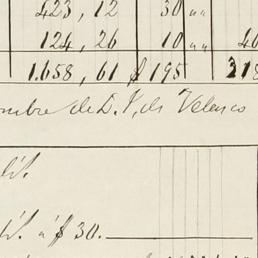 423, 12 30 " "
124, 26 10 " " 40
1.658, 61 $ 195 318
ombre de D. V. de Velasco
líl.
líl. a' $ 30.